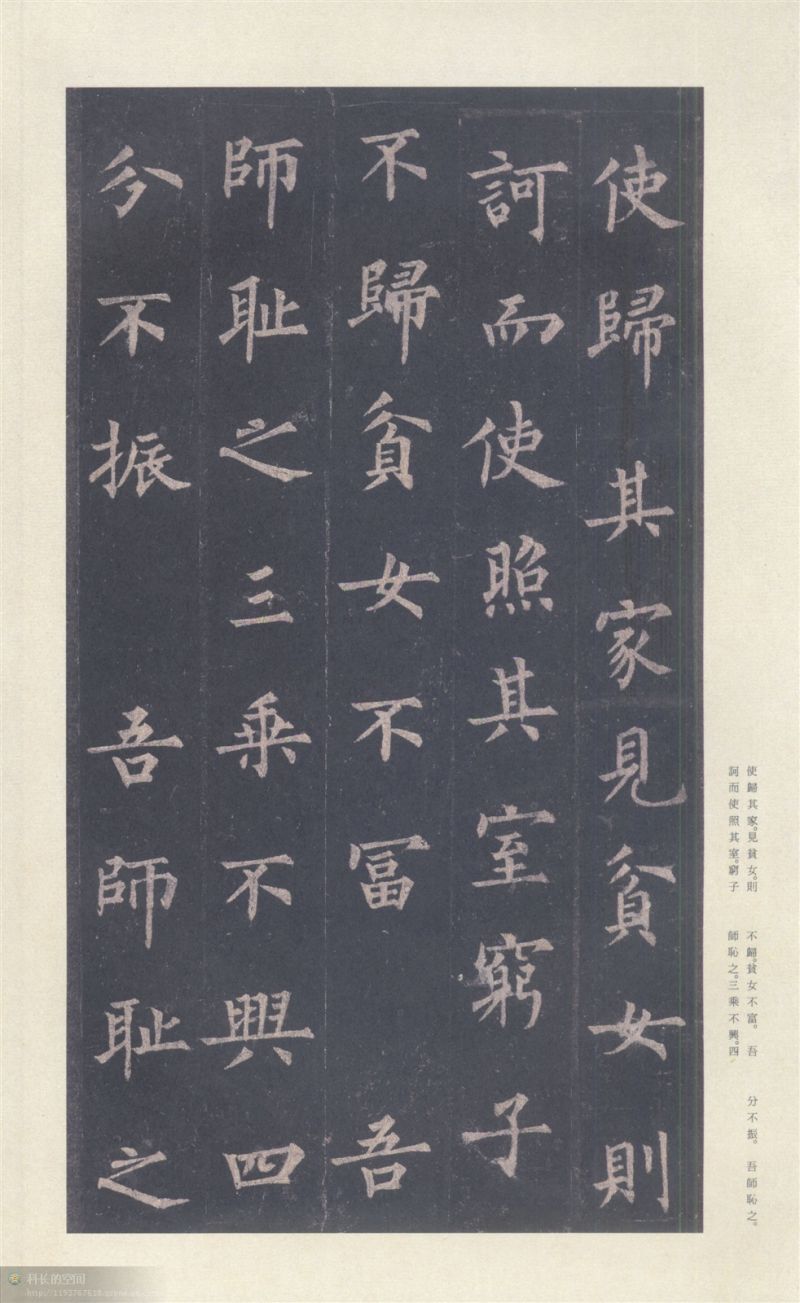 使歸其家見貧女則
訶而使照其室窮子
不歸貧女不冨吾
師耻之三乗不興四
分不振吾師耻之
使歸其家。見貧女。則
訶而使照其室。窮子
不歸。貧女不富。吾
師恥之。三乘不興。四
分不振。吾師恥之。
科长的空间